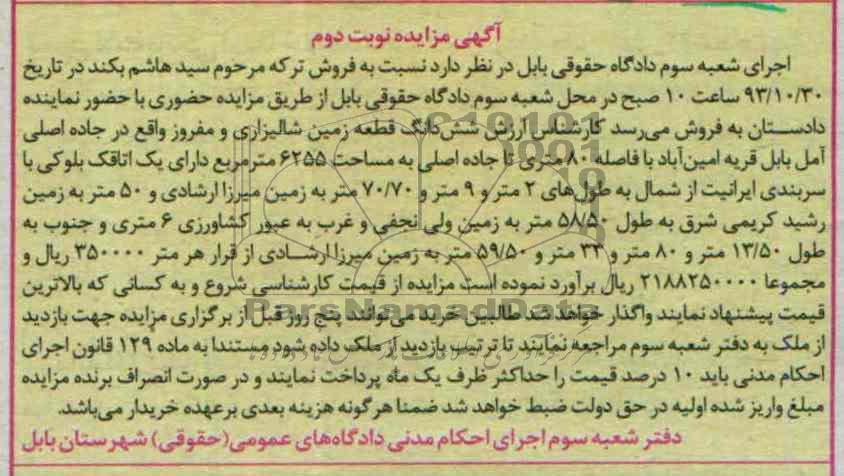 آگهی مزایده نوبت دوم
اجرای شعبه سوم دادگاه حقوقی بابل در نظر دارد نسبت به فروش ترکه مرحوم سید هاشم بکند در تاریخ
۹۳/۱۰/۳۰ ساعت ۱۰ صبح در محل شعبه سوم دادگاه حقوقی بابل از طریق مزایده حضوری با حضور نماینده
دادستان به فروش می‌رسد کارشناس ارزش شش‌دانگ قطعه زمین شالیزاری و مفروز واقع در جاده اصلی
آمل بابل قریه امین‌آباد با فاصله ۸۰ متری تا جاده اصلی به مساحت ۶۲۵۵ مترمربع دارای یک اتاقک بلوکی با
سربندی ایرانیت از شمال به طول‌های ۲ متر و ۹ متر و ۷۰/۷۰ متر به زمین میرزا ارشادی و ۵۰ متر به زمین
رشید کریمی شرق به طول ۵۸/۵۰ متر به زمین ولی نجفی و غرب به عبور کشاورزی ۶ متری و جنوب به
طول ۱۳/۵۰ متر و ۸۰ متر و ۳۳ متر و ۵۹/۵۰ متر به زمین میرزا ارشادی از قرار هر متر ۳۵۰۰۰۰ ریال و
مجموعا ۲۱۸۸۲۵۰۰۰۰ ریال برآورد نموده است مزایده از قیمت کارشناسی شروع و به کسانی که بالاترین
قیمت پیشنهاد نمایند واگذار خواهد شد طالبین خرید می‌توانند پنج روز قبل از برگزاری مزایده جهت بازدید
از ملک به دفتر شعبه سوم مراجعه نمایند تا ترتیب بازدید از ملک داده شود مستندا به ماده ۱۲۹ قانون اجرای
احکام مدنی باید ۱۰ درصد قیمت را حداکثر ظرف یک ماه پرداخت نمایند و در صورت انصراف برنده مزایده
مبلغ واریز شده اولیه در حق دولت ضبط خواهد شد ضمنا هرگونه هزینه بعدی برعهده خریدار می‌باشد.
دفتر شعبه سوم اجرای احکام مدنی دادگاه‌های عمومی(حقوقی) شهرستان بابل
ParsNamadData